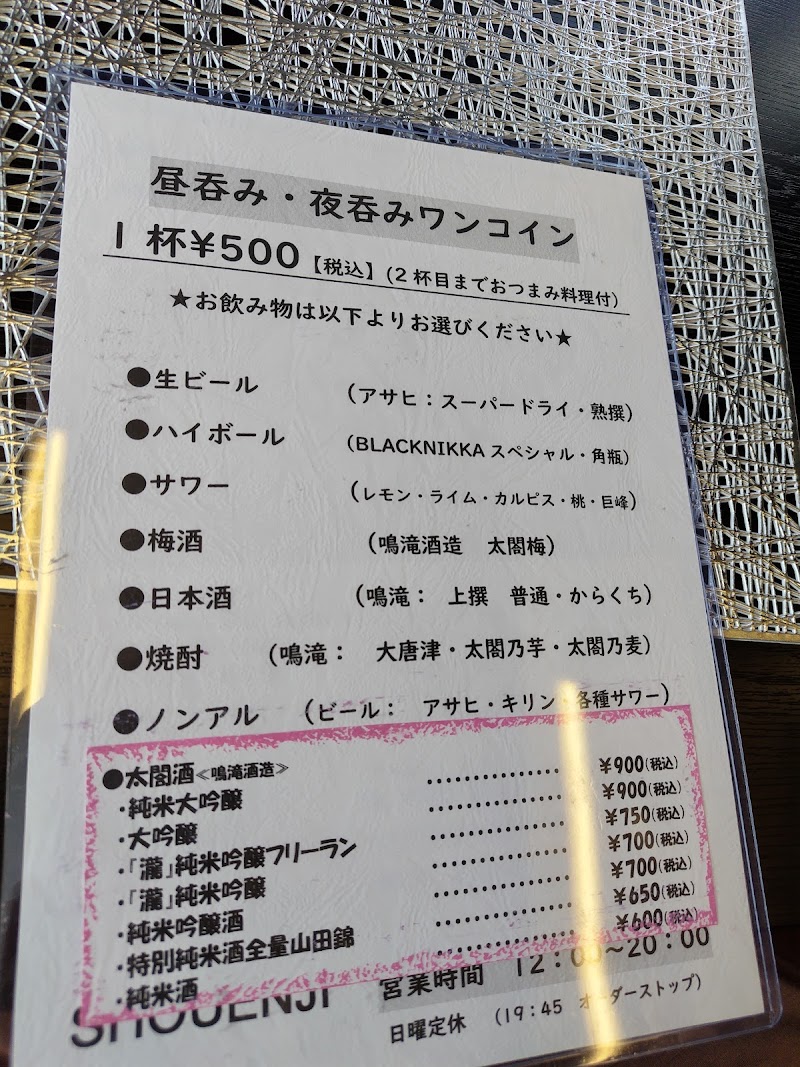 昼呑み・夜呑みワンコイン
1杯¥500【税込】(2杯目までおつまみ料理付)
★お飲み物は以下よりお選びください★
●生ビール (アサヒ:スーパードライ・熟撰)
●ハイボール (BLACKNIKKAスペシャル・角瓶)
●サワー (レモン・ライム・カルピス・桃・巨峰)
●梅酒 (鳴滝酒造 太閤梅)
●日本酒 (鳴滝: 上撰 普通・からくち)
●焼酎 (鳴滝: 大唐津・太閤乃芋・太閤乃麦)
●ノンアル (ビール: アサヒ・キリン・各種サワー)
●太閤酒≪鳴滝酒造≫
・純米大吟醸 ‥‥‥‥‥‥ ¥900(税込)
・大吟醸 ‥‥‥‥‥‥ ¥900(税込)
・「瀧」純米吟醸フリーラン ‥‥‥‥‥‥ ¥750(税込)
・「瀧」純米吟醸 ‥‥‥‥‥‥ ¥700(税込)
・純米吟醸酒 ‥‥‥‥‥‥ ¥700(税込)
・特別純米酒全量山田錦 ‥‥‥‥‥‥ ¥650(税込)
・純米酒 ‥‥‥‥‥‥ ¥600(税込)
SHOUENJI 営業時間 12:00~20:00
日曜定休 (19:45 オーダーストップ)